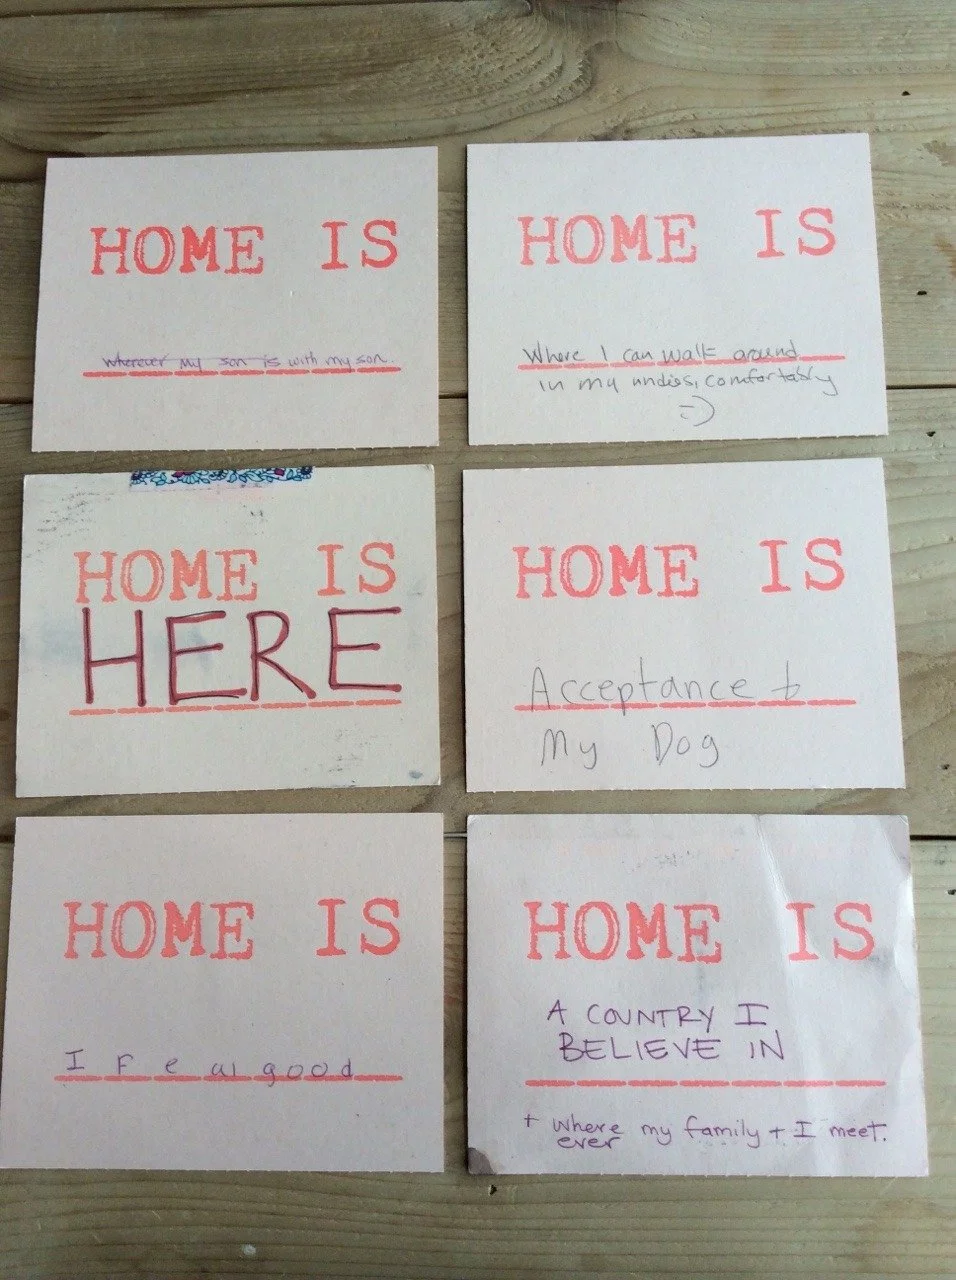 HOME IS
wherever my son is with my son.
HOME IS
Where I can walk around
in my undies, comfortably
=)
HOME IS
HERE
HOME IS
Acceptance +
My Dog
HOME IS
I Feal good
HOME IS
A COUNTRY I
BELIEVE IN
+ where my family + I meet.
ever